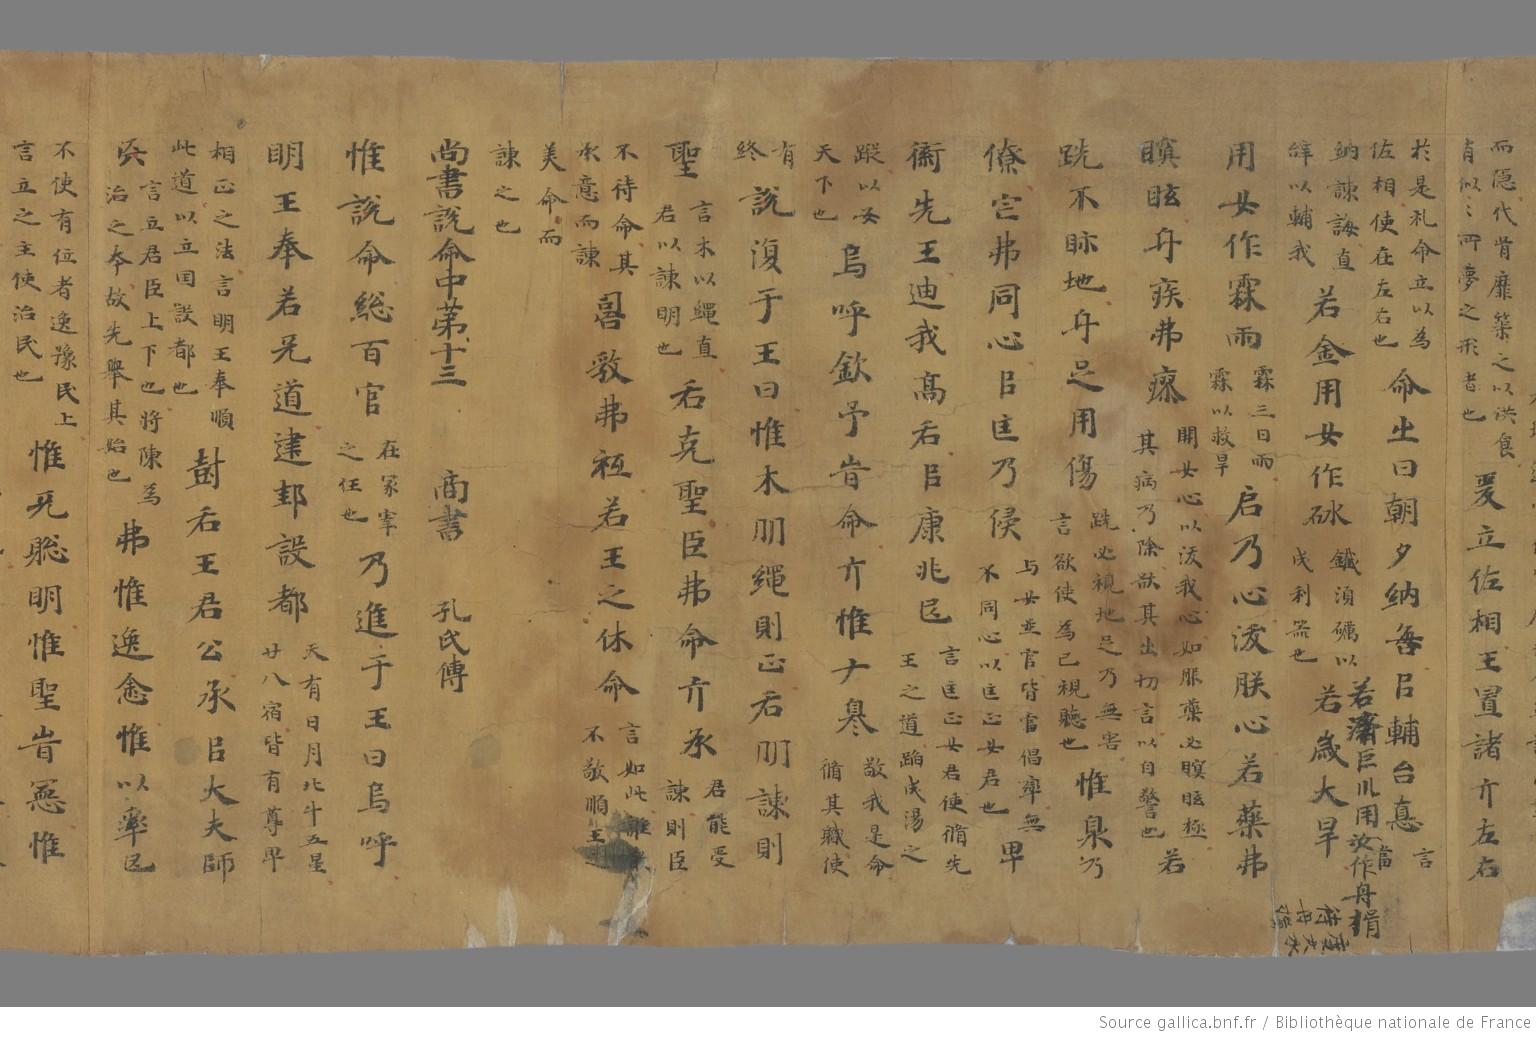 而隐代胥靡築之以洪食
肖似=所夢之形者也
爰立佐相王置諸亓左右
於是礼命立以為
佐相使在左右也
命出曰朝夕納誨㠯輔台悳
言
當
納諫誨直
辞以輔我
若金用女作砅
鐵須礪以
成利噐也
若濟巨川用汝作舟揖
若歲大旱
用女作霖雨
霖三日雨
霖以救旱
启乃心沃朕心若藥弗
瞑眩舟疾弗瘳
開女心以沃我心如服藥必瞑眩極
其病乃除欲其出切言以自警也
若
跣不眎地舟足用傷
跣必視地足乃無害
言欲使為己視聽也
惟泉乃
僚官弗同心㠯匡乃侯
与女並官皆當倡率無
不同心以匡正女君也
卑
衞先王迪我髙后㠯康兆民
言匡正女君使循先
王之道蹈成湯之
蹤以安
天下也
烏呼欽予旹命亓惟ナ𠦪
敬我是命
循其職使
有
終
說復于王曰惟木刅繩則正后刅諫則
聖
言木以繩直
君以諫明也
后克聖臣弗命亓承
君能受
諫則臣
不待命其
承意而諫
𠷎敦弗祗若王之休命
言如此誰
不敬順王
美命而
諫之也
尚書說命中第十三 啇書 孔氏傳
惟說命総百官
在冢宰
之任也
乃進于王曰烏呼
明王奉若兂道建邦設都
天有日月北斗五星
廿八宿皆有尊卑
相正之法言明王奉順
此道以立国設都也
尌后王君公承㠯大夫師
𠱾
言立君臣上下也將陳為
治之夲故先舉其始也
弗惟逸悆惟以率民
不使有位者逸豫民上
言立之主使治民也
惟兂聡明惟聖旹憲惟
Source gallica.bnf.fr / Bibliothèque nationale de France